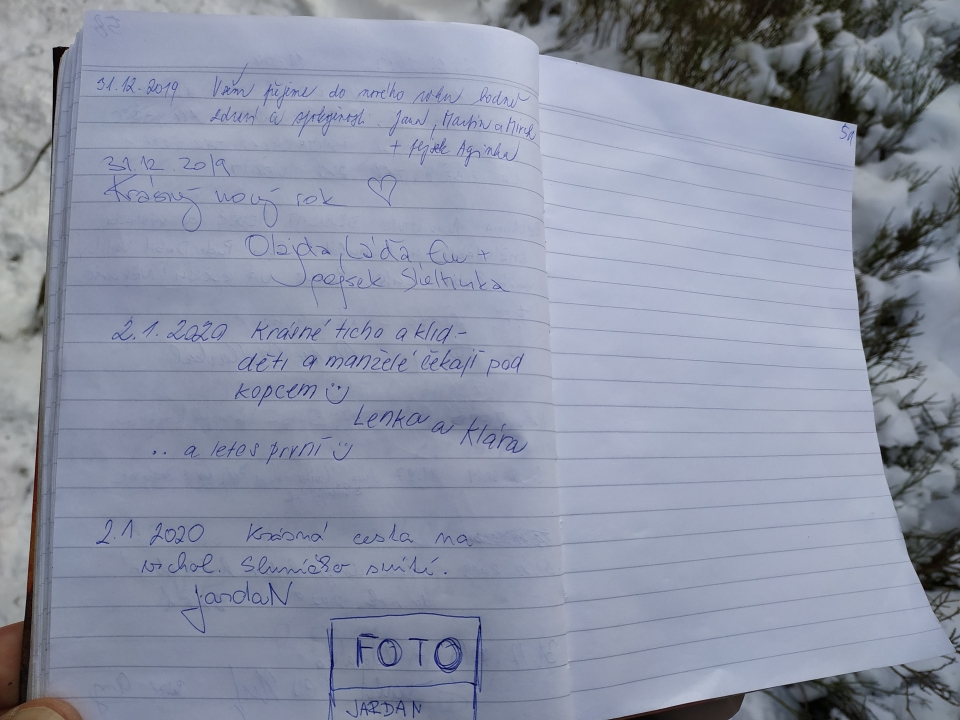 31.12.2019 Všem přejeme do nového roku hodně
zdraví a spokojenosti. Jana, Martin a Mirek
+ pejsek Aginka
51
31.12.2019
Krásný nový rok ♡
Láďa, +
pejsek
2.1.2020 Krásné ticho a klid-
děti a manželé čekají pod
kopcem
Lenka a Klára
.. a letos první
2.1.2020 Krásná cesta na
vrchol. Sluníčko svítí.
jardaN
FOTO
JARDAN